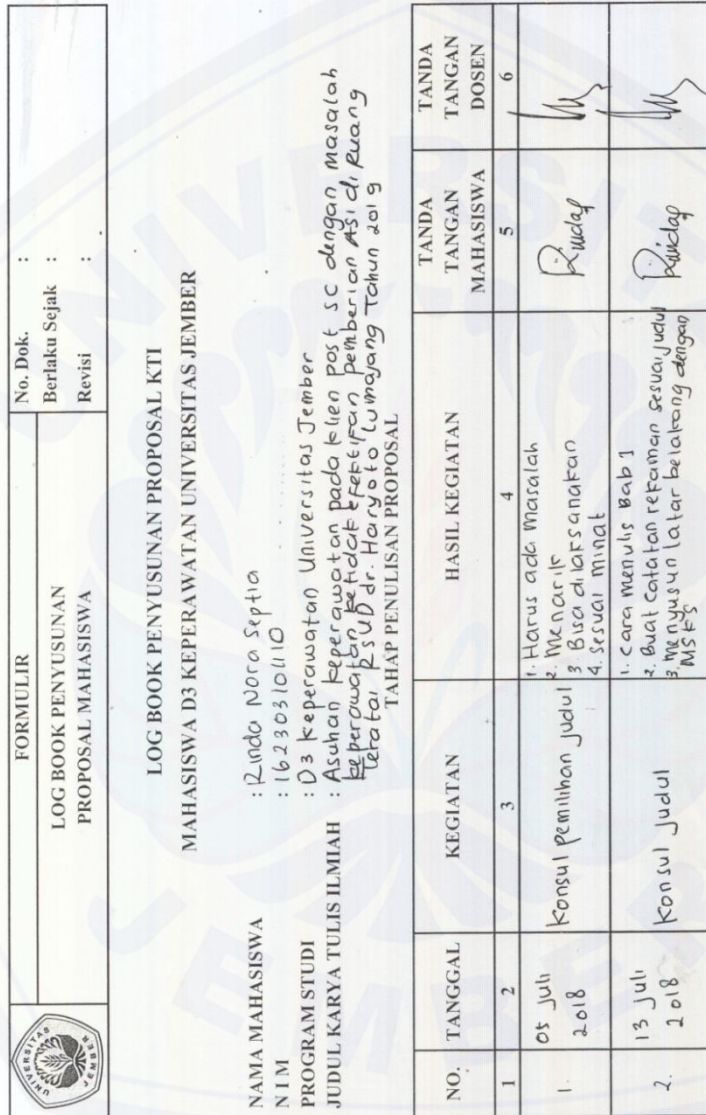 UNIVERSITAS JEMBER
FORMULIR
No. Dok. :
LOG BOOK PENYUSUNAN
PROPOSAL MAHASISWA
Berlaku Sejak :
Revisi :
LOG BOOK PENYUSUNAN PROPOSAL KTI
MAHASISWA D3 KEPERAWATAN UNIVERSITAS JEMBER
NAMA MAHASISWA : Rinda Nora Septia
N I M : 162303101110
PROGRAM STUDI : D3 keperawatan Universitas Jember
JUDUL KARYA TULIS ILMIAH : Asuhan keperawatan pada klien post sc dengan masalah
keperawatan ketidak efektifan pemberian Asi di Ruang
Teratai RSUD dr. Haryoto Lumajang Tahun 2019
TAHAP PENULISAN PROPOSAL
NO. TANGGAL KEGIATAN HASIL KEGIATAN TANDA TANGAN MAHASISWA TANDA TANGAN DOSEN
1 2 3 4 5 6
1. 05 Juli 2018 Konsul pemilihan judul
1. Harus ada masalah
2. Menarik
3. Bisa dilaksanakan
4. Sesuai minat
Rindap
2. 13 Juli 2018 Konsul Judul
1. Cara menulis Bab 1
2. Buat catatan rekaman sesuai judul
3. Menyusun latar belakang dengan
MSKS
Rindap
UNIVERSITAS
JEMBER